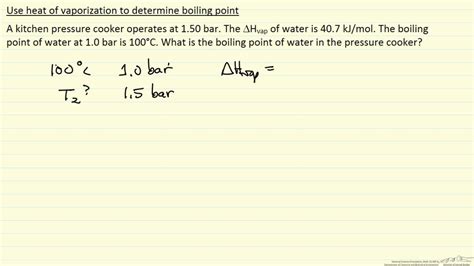 Use heat of vaporization to determine boiling point
A kitchen pressure cooker operates at 1.50 bar. The ΔHvap of water is 40.7 kJ/mol. The boiling
point of water at 1.0 bar is 100°C. What is the boiling point of water in the pressure cooker?
100°C 1.0 bar ΔHvap =
T2? 1.5 bar